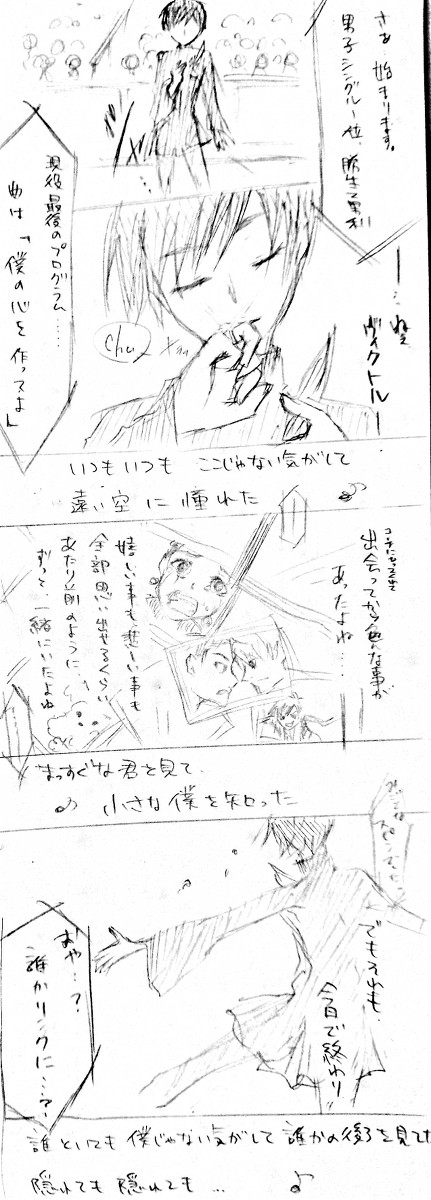 さあ 始まります。
男子シングル1位、勝生勇利
現役最後のプログラム……
曲は「僕の心を作ってよ」
ー…ねえ
ヴィクトルー
chu
いつもいつも ここじゃない気がして
遠い空に憧れた ♪
コーチになってくれて
出会ってから色んな事が
あったよね…
嬉しい事も悲しい事も
全部思い出せるくらい
あたり前のように
ずっと、一緒にいたよね
まっすぐな君を見て、
♪ 小さな僕を知った
でもそれも、
今日で終わり
おや…?
誰かリンクに…?
誰といても 僕じゃない気がして 誰かの後ろを見ても
隠れても 隠れても… ♪